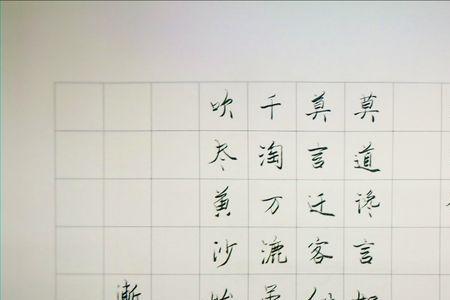 莫道谗言
莫言迁客
千淘万漉
吹尽黄沙
漸